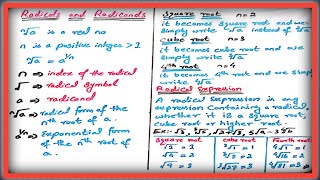 Radicals and Radicands
ⁿ√a is a real no
n is a positive integer > 1
ⁿ√a = a^(1/n)
n ⟹ index of the radical
√ ⟹ radical symbol
a ⟹ radicand
ⁿ√a ⟹ radical form of the
nth root of a.
a^(1/n) ⟹ exponential form
of the nth root of a
Square root n=2
it becomes square root and we
simply write √a instead of ²√a
cube root n=3
it becomes cube root and we
simply write ³√a
4th root n=4
it becomes 4th root and we simply
write ⁴√a
Radical Expression
A radical expression is any
expression containing a radical,
whether it is a square root,
cube root or higher root.
Square root Cube root Fourth root